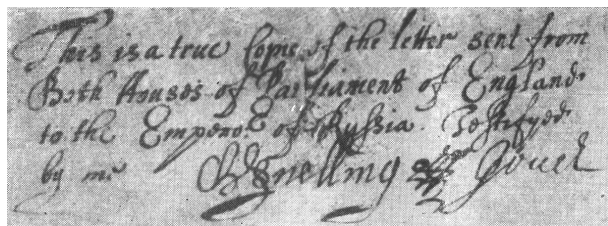 This is a true Copie of the letter sent from
Both Houses of Parliament of England
to the Emperor of Russia. Testifyed
by me Snelling